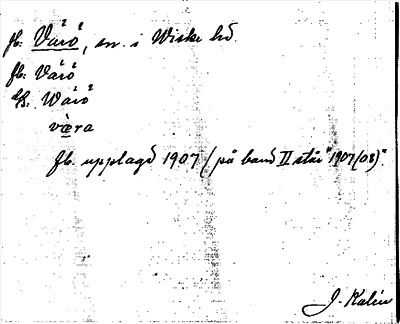 jb. Värö, sn. i Wiske hd.
jb: Värö
Wärö
væra
jb. upplagd 1907 (på band II står "1907(08)".
J. Kalén